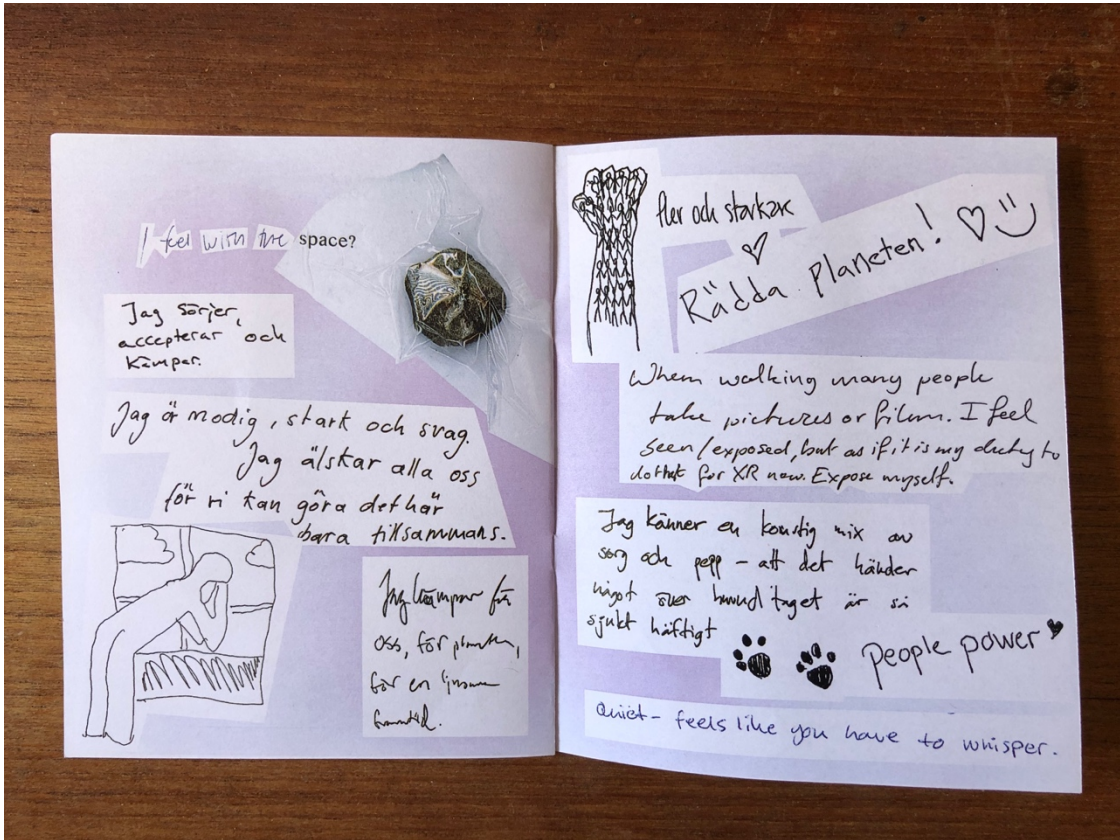 I feel with the space?
Jag sörjer,
accepterar och
kämpar.
Jag är modig, stark och svag.
Jag älskar alla oss
för vi kan göra det här
bara tillsammans.
Jag kämpar för
oss, för planeten,
för en ljusare
framtid.
fler och starkare
Rädda planeten!
When walking many people
take pictures or film. I feel
seen/exposed, but as if it is my duty to
do that for XR now. Expose myself.
Jag känner en konstig mix av
sorg och pepp – att det händer
något över huvud taget är så
sjukt häftigt
people power
Quiet – feels like you have to whisper.